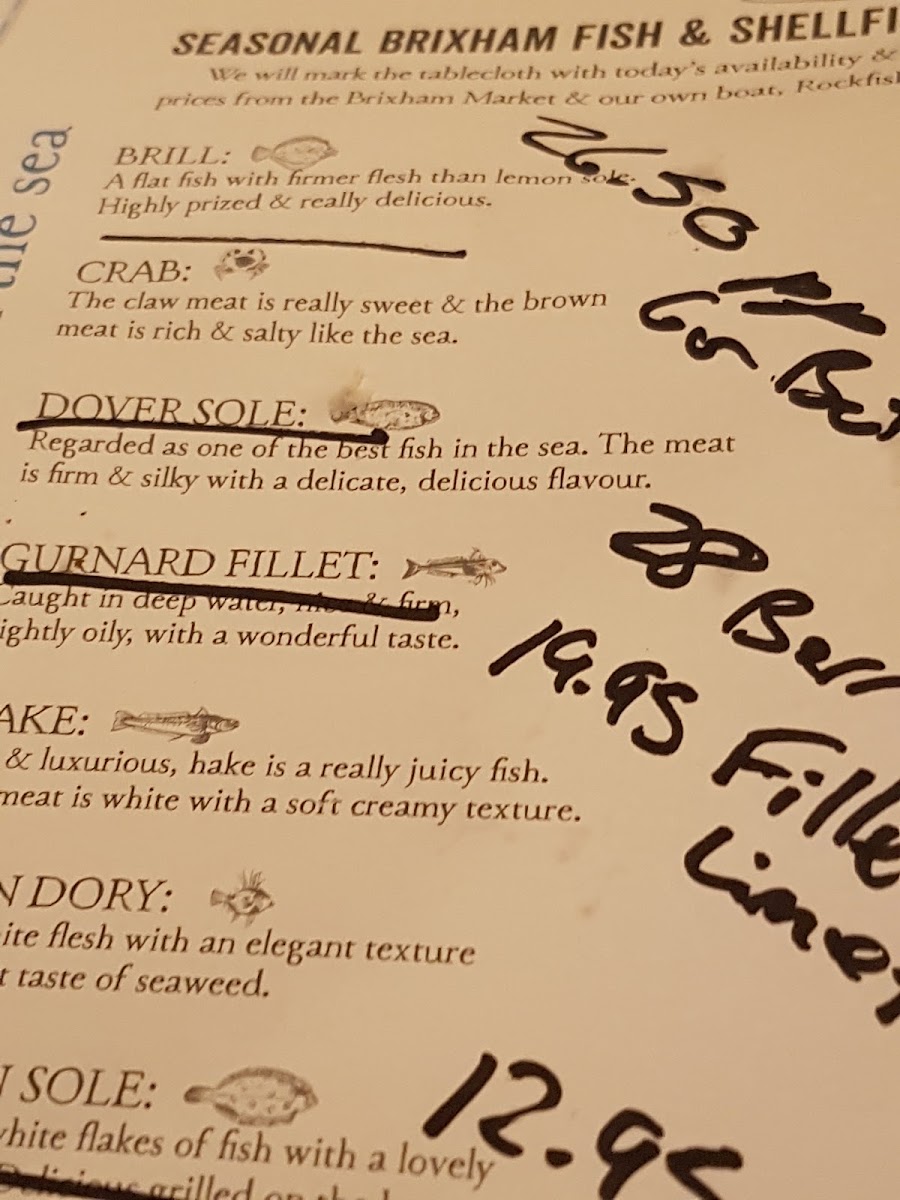 SEASONAL BRIXHAM FISH & SHELLFI
We will mark the tablecloth with today's availability &
prices from the Brixham Market & our own boat, Rockfish
the sea
BRILL:
A flat fish with firmer flesh than lemon sole.
Highly prized & really delicious.
26.50
CRAB:
The claw meat is really sweet & the brown
meat is rich & salty like the sea.
DOVER SOLE:
Regarded as one of the best fish in the sea. The meat
is firm & silky with a delicate, delicious flavour.
28
GURNARD FILLET:
Caught in deep water, nice & firm,
ightly oily, with a wonderful taste.
19.95
Fille
AKE:
& luxurious, hake is a really juicy fish.
meat is white with a soft creamy texture.
N DORY:
ite flesh with an elegant texture
t taste of seaweed.
N SOLE:
white flakes of fish with a lovely
12.95
Delicious grilled on the b